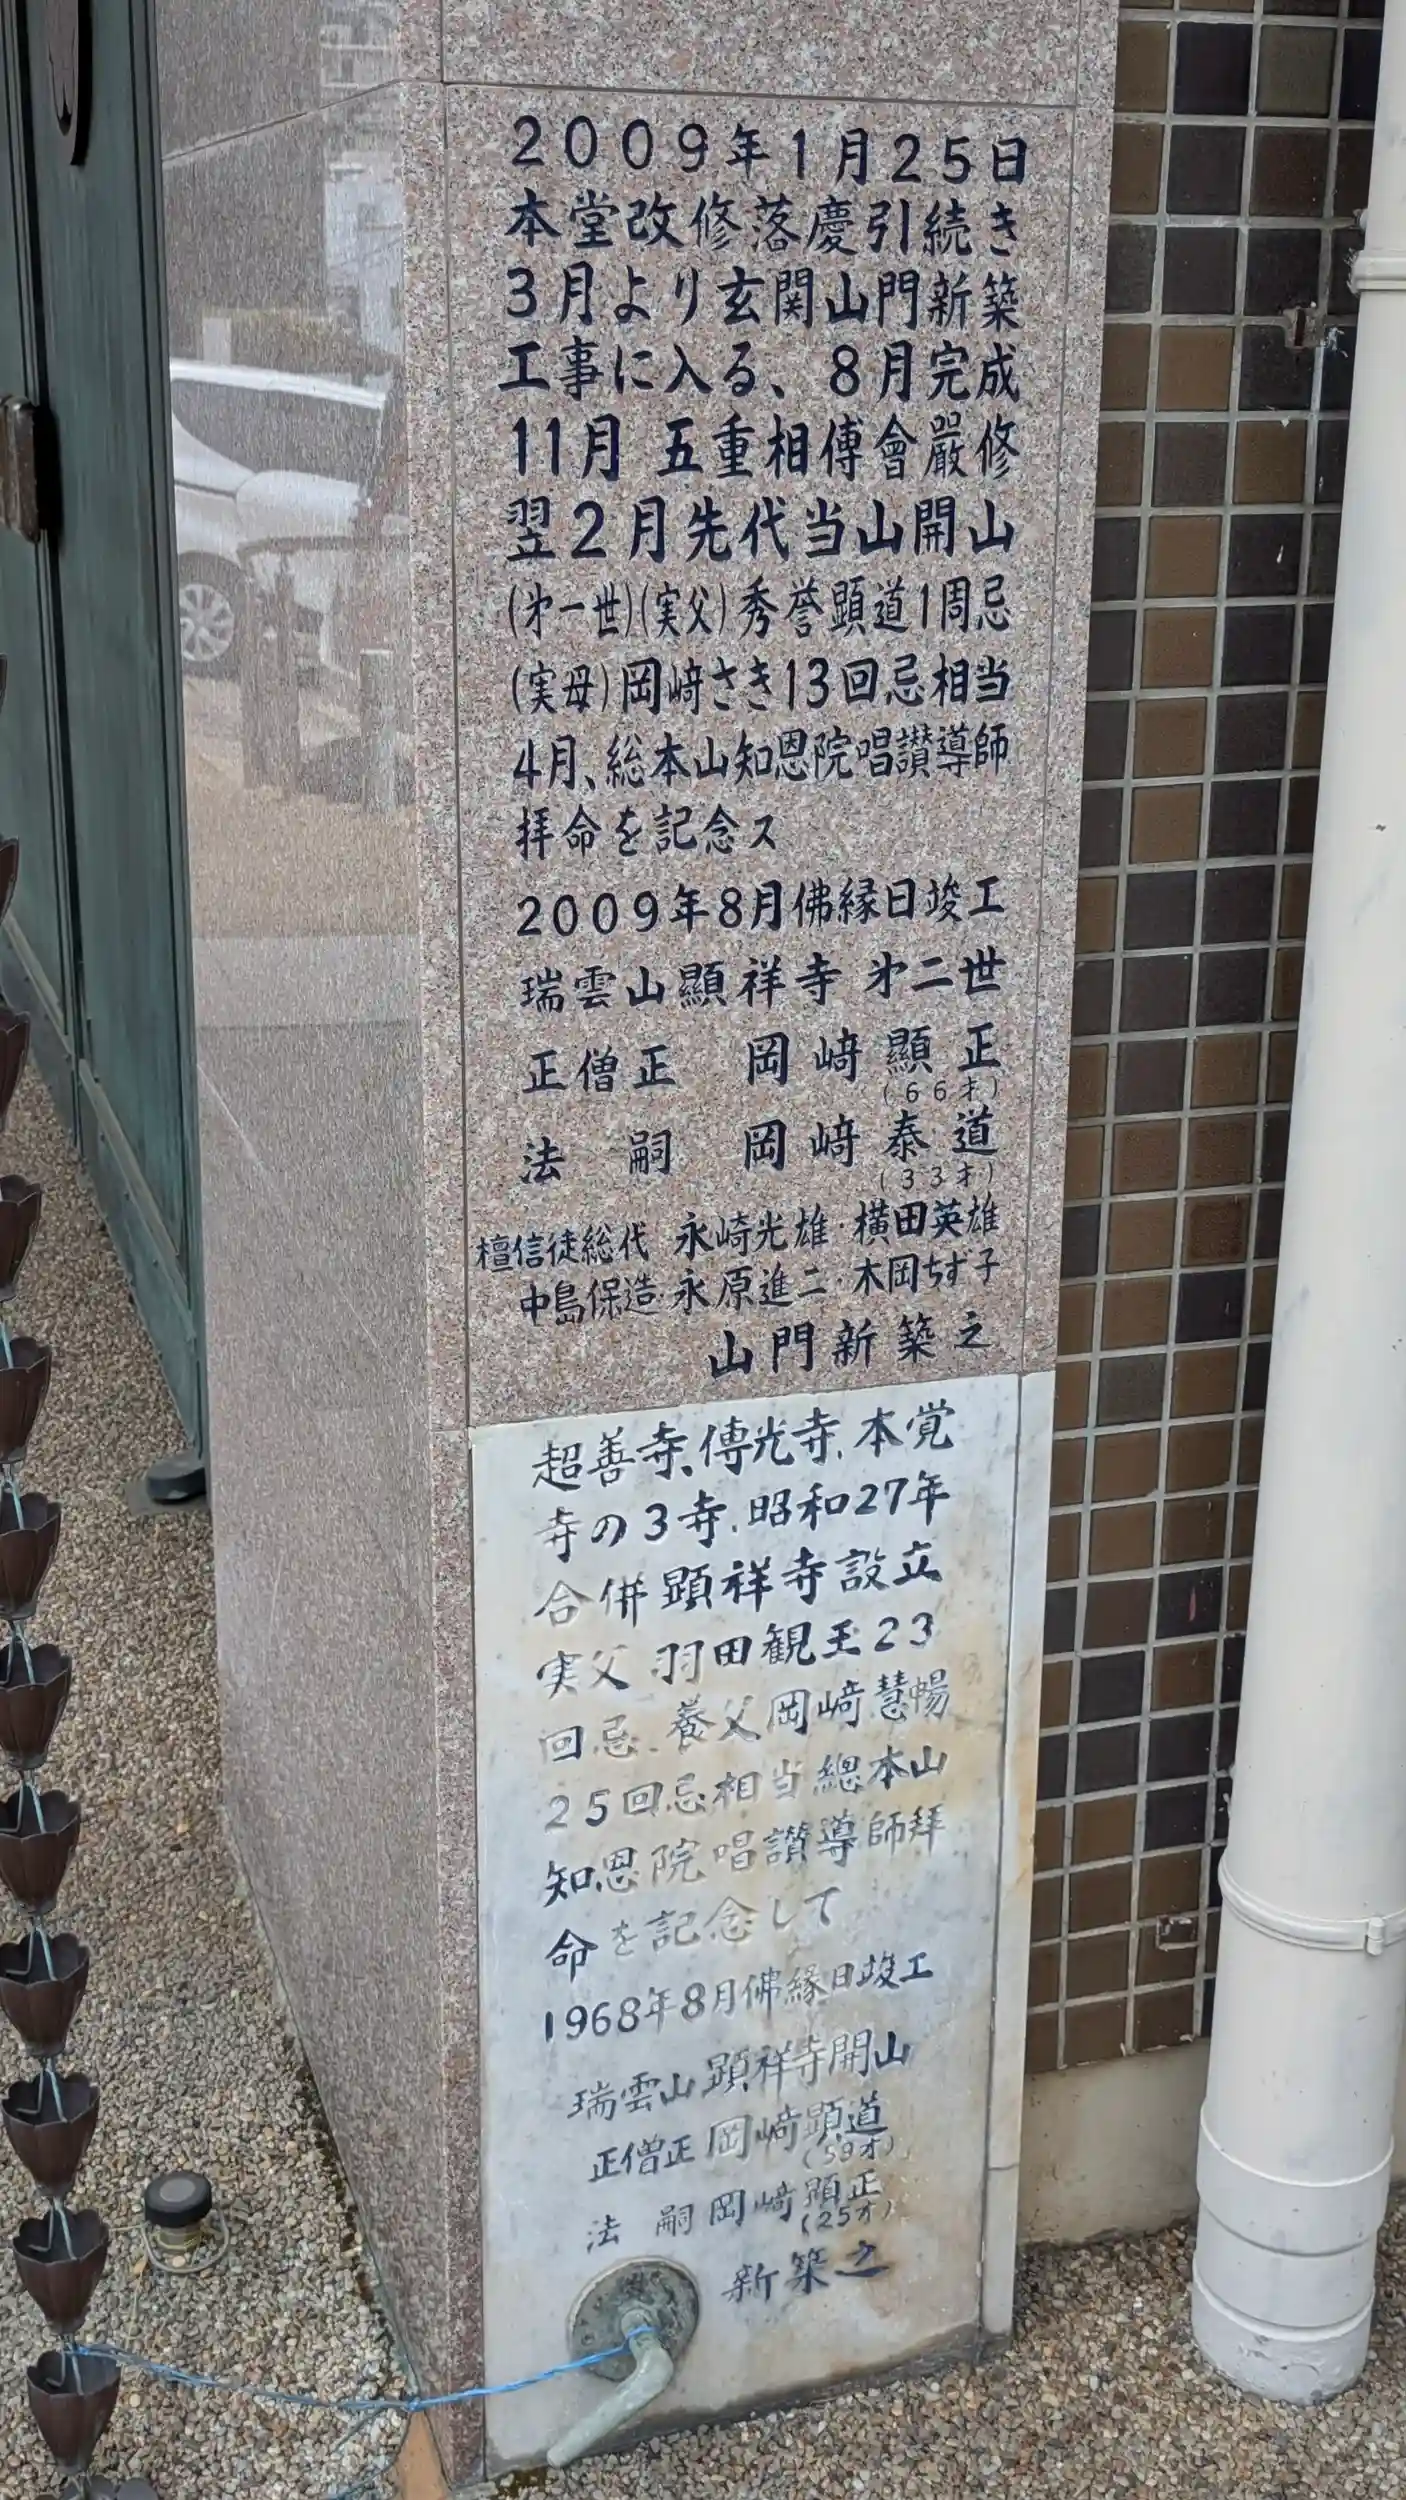 2009年1月25日
本堂改修落慶引続き
3月より玄関山門新築
工事に入る、8月完成
11月 五重相傳會厳修
翌2月先代当山開山
(㐧一世)(実父)秀誉顕道1周忌
(実母)岡﨑さき13回忌相当
4月、総本山知恩院唱讃導師
拝命を記念ス
2009年8月佛縁日竣工
瑞雲山顯祥寺 㐧二世
正僧正 岡﨑顯正
(66才)
法嗣 岡﨑泰道
(33才)
檀信徒総代 永崎光雄・横田英雄
中島保造・永原進二・木岡ちず子
山門新築之
超善寺、傳光寺、本覚
寺の3寺、昭和27年
合併顕祥寺設立
実父 羽田観王23
回忌、養父岡﨑慧暢
25回忌相当總本山
知恩院唱讃導師拝
命を記念して
1968年8月佛縁日竣工
瑞雲山顕祥寺開山
正僧正岡﨑顕道
(59才)
法嗣岡﨑顕正
(25才)
新築之